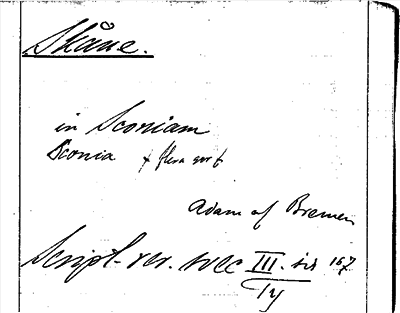 Skåne.
in Sconiam
Sconia + flera
Adam af Bremen
Script. rer. svec III. sid 167